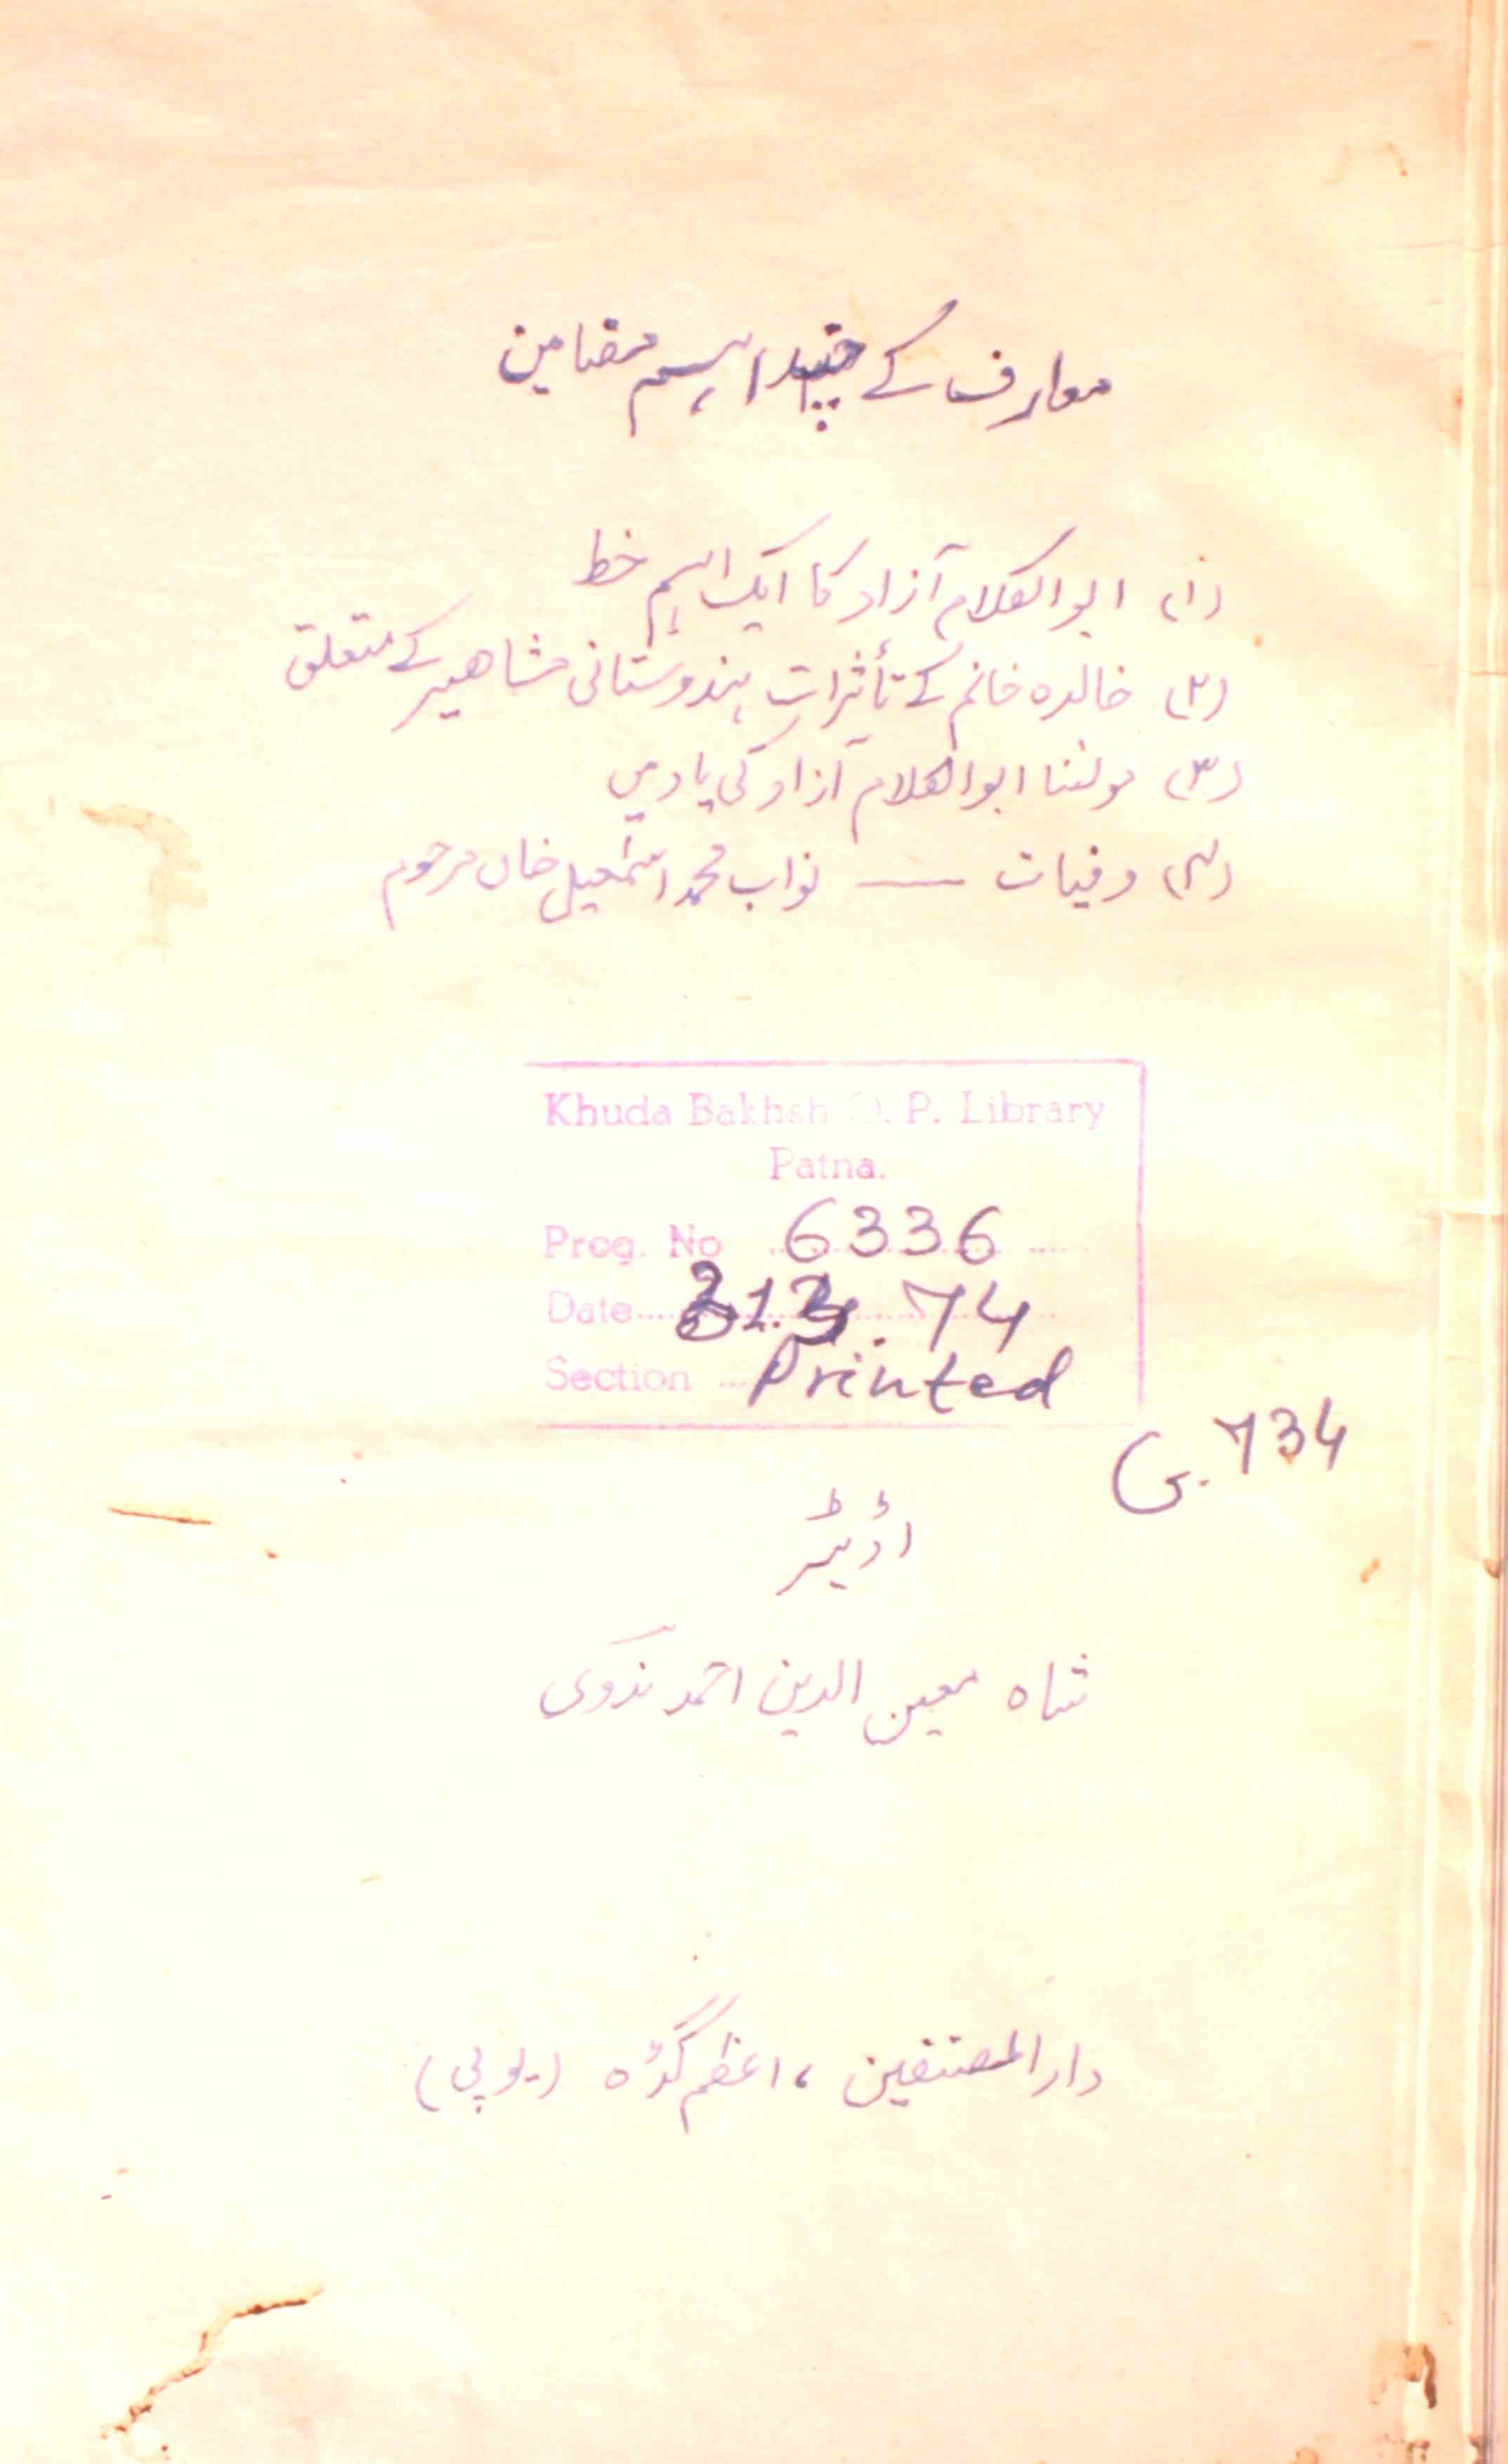 معارف کے چند اہم مضامین
(۱) ابوالکلام آزاد کا ایک اہم خط
(۲) خالدہ خانم کے تأثرات ہندوستانی مشاھیر کے متعلق
(۳) مولٰنا ابوالکلام آزاد کی یاد میں
(۴) وفیات — نواب محمد اسمٰعیل خاں مرحوم
Khuda Bakhsh O. P. Library
Patna.
Prog. No 6336
Date 31.3.74
Section Printed
G. 734
اڈیٹر
شاہ معین الدین احمد ندوی
دارالمصنفین ، اعظم گڑہ (یوپی)